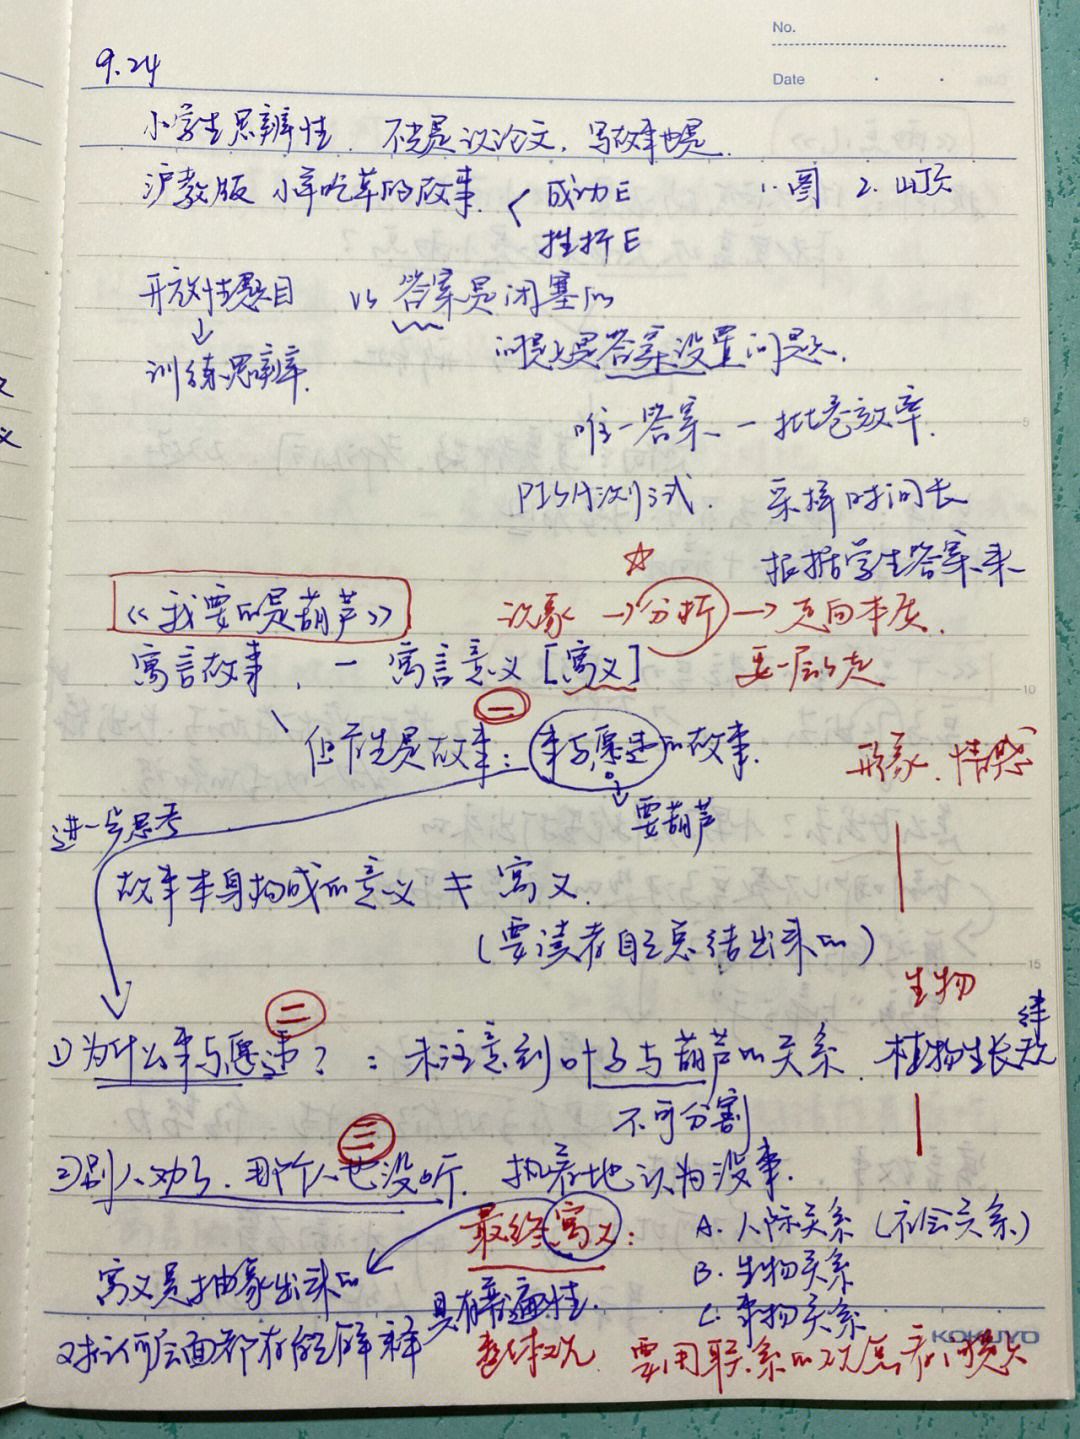 No.
Date
9.24
小学生思辨性 不光是议论文，写故事也是.
沪教版 小羊吃草的故事 < 成功E 1. 图 2. 山顶
挫折E
开放性题目 vs 答案是闭塞的
↓ 训练思辨. 问题是答案设置问题.
唯一答案 — 批卷效率.
PISA测试. 采样时间长
根据学生答案来
《我要的是葫芦》 ☆ 现象 → 分析 → 走向本质.
寓言故事, — 寓言意义 [寓义] 要一层层走
一
但首先是故事: 事与愿违的故事. 形象. 情感
↓ 要葫芦
进一步思考
故事本身构成的意义 ≠ 寓义.
(要读者自己总结出来的)
生物
二
1) 为什么事与愿违? : 未注意到叶子与葫芦的关系. 植物生长规律
不可分割
三
2) 别人劝了. 那个人也没听. 执着地认为没事.
最终寓义: A. 人际关系 (社会关系)
寓义是抽象出来的 B. 生物关系
具有普遍性. C. 事物关系
对任何层面都有能解释 整体观. 要用联系的观点看问题
KOKUYO
5
10
15